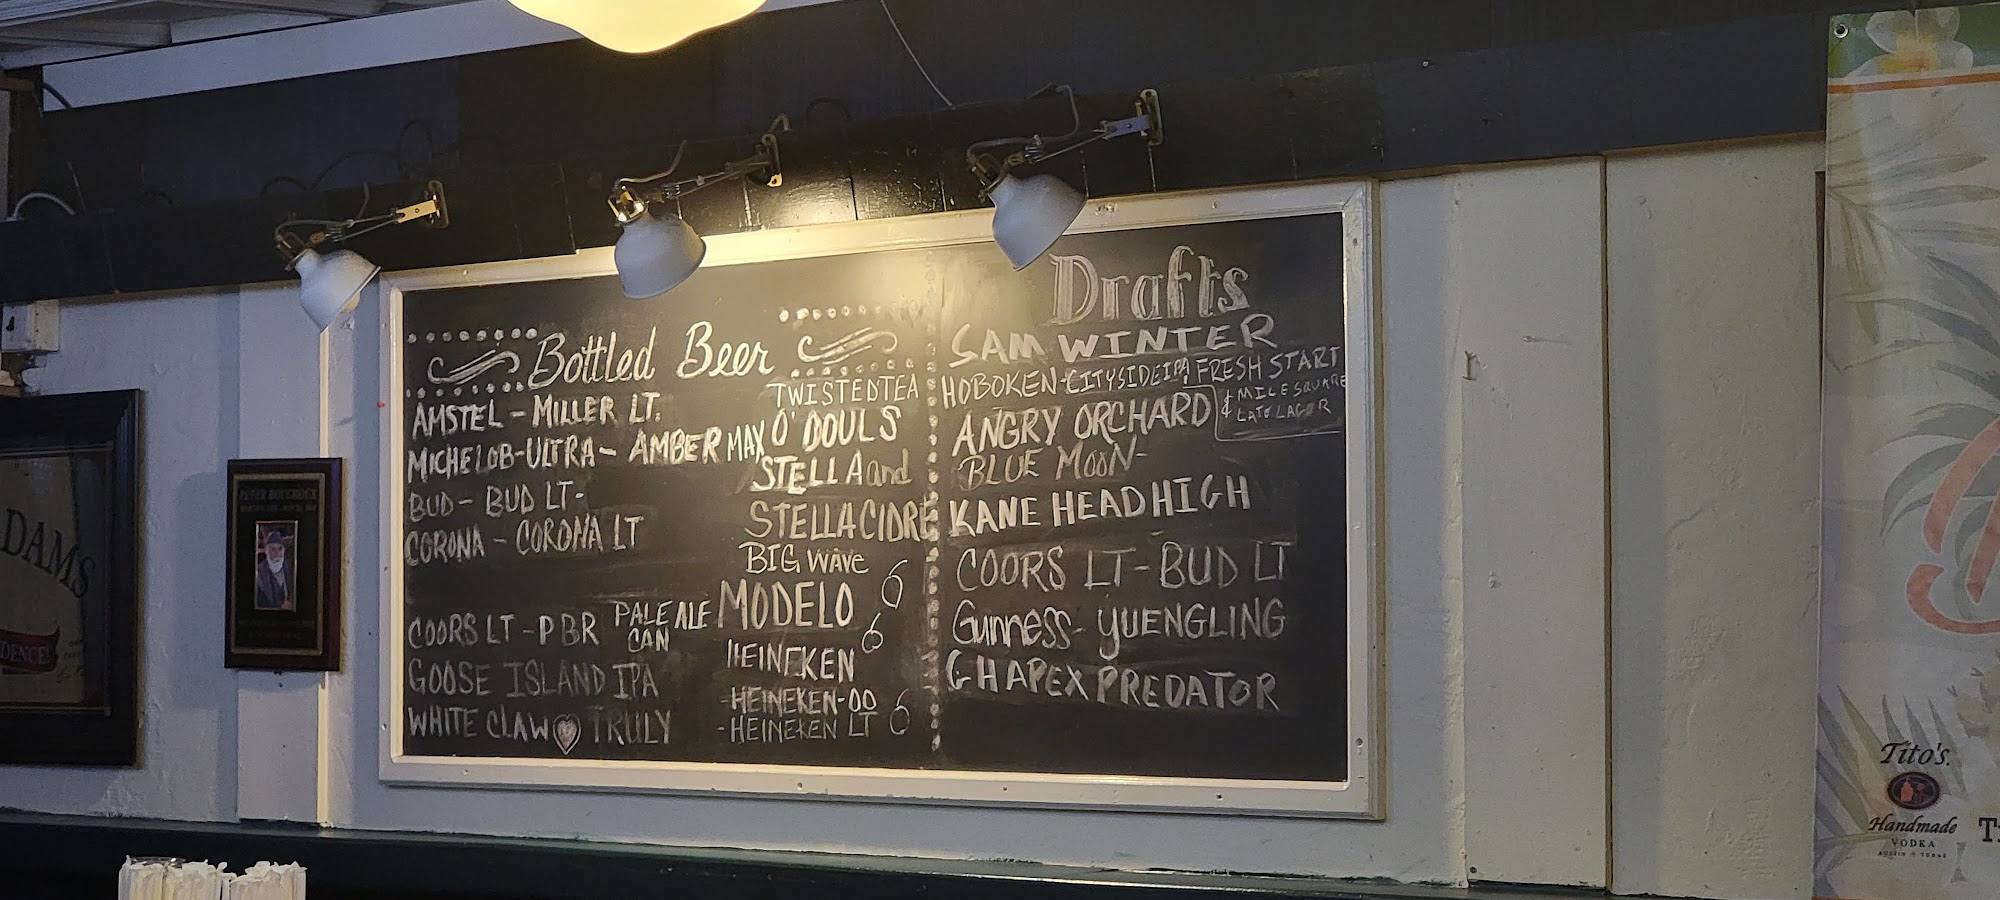 Bottled Beer
AMSTEL - MILLER LT.
MICHELOB-ULTRA - AMBER MAX
BUD - BUD LT-
CORONA - CORONA LT
COORS LT - PBR PALE ALE
CAN
GOOSE ISLAND IPA
WHITE CLAW TRULY
TWISTED TEA
O'DOULS
STELLA and
STELLA CIDRE
BIG WAVE
MODELO
HEINEKEN
-HEINEKEN-00
-HEINEKEN LT
Drafts
SAM WINTER
HOBOKEN-CITYSIDE IPA, FRESH START
& MILE SQUARE
LATE LAGER
ANGRY ORCHARD
BLUE MOON-
KANE HEAD HIGH
COORS LT - BUD LT
Guinness - YUENGLING
G H APEX PREDATOR
DAMS
DENCE!
Tito's.
Handmade
VODKA